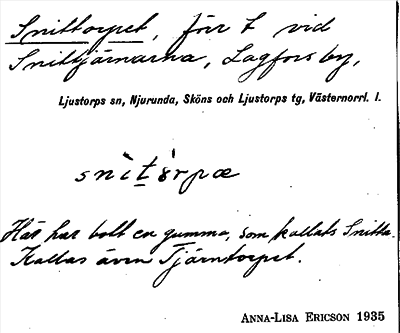 Snittorpet, förr t vid
Snittjärnarna, Lagfors by,
Ljustorps sn, Njurunda, Sköns och Ljustorps tg, Västernorrl. l.
snìt̲òrpæ
Här har bott en gumma, som kallats Snitta.
Kallas även Tjärntorpet.
ANNA-LISA ERICSON 1935